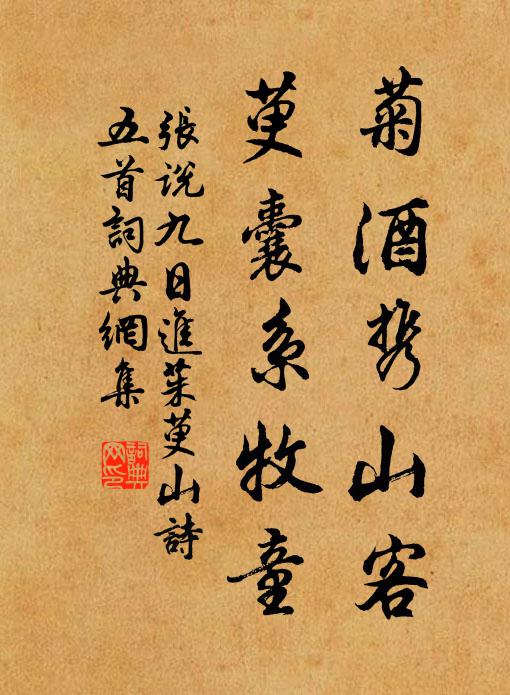 菊酒携山客
萸囊系牧童
張説九日進茱萸山詩
五首詞典網集
詞典
网印